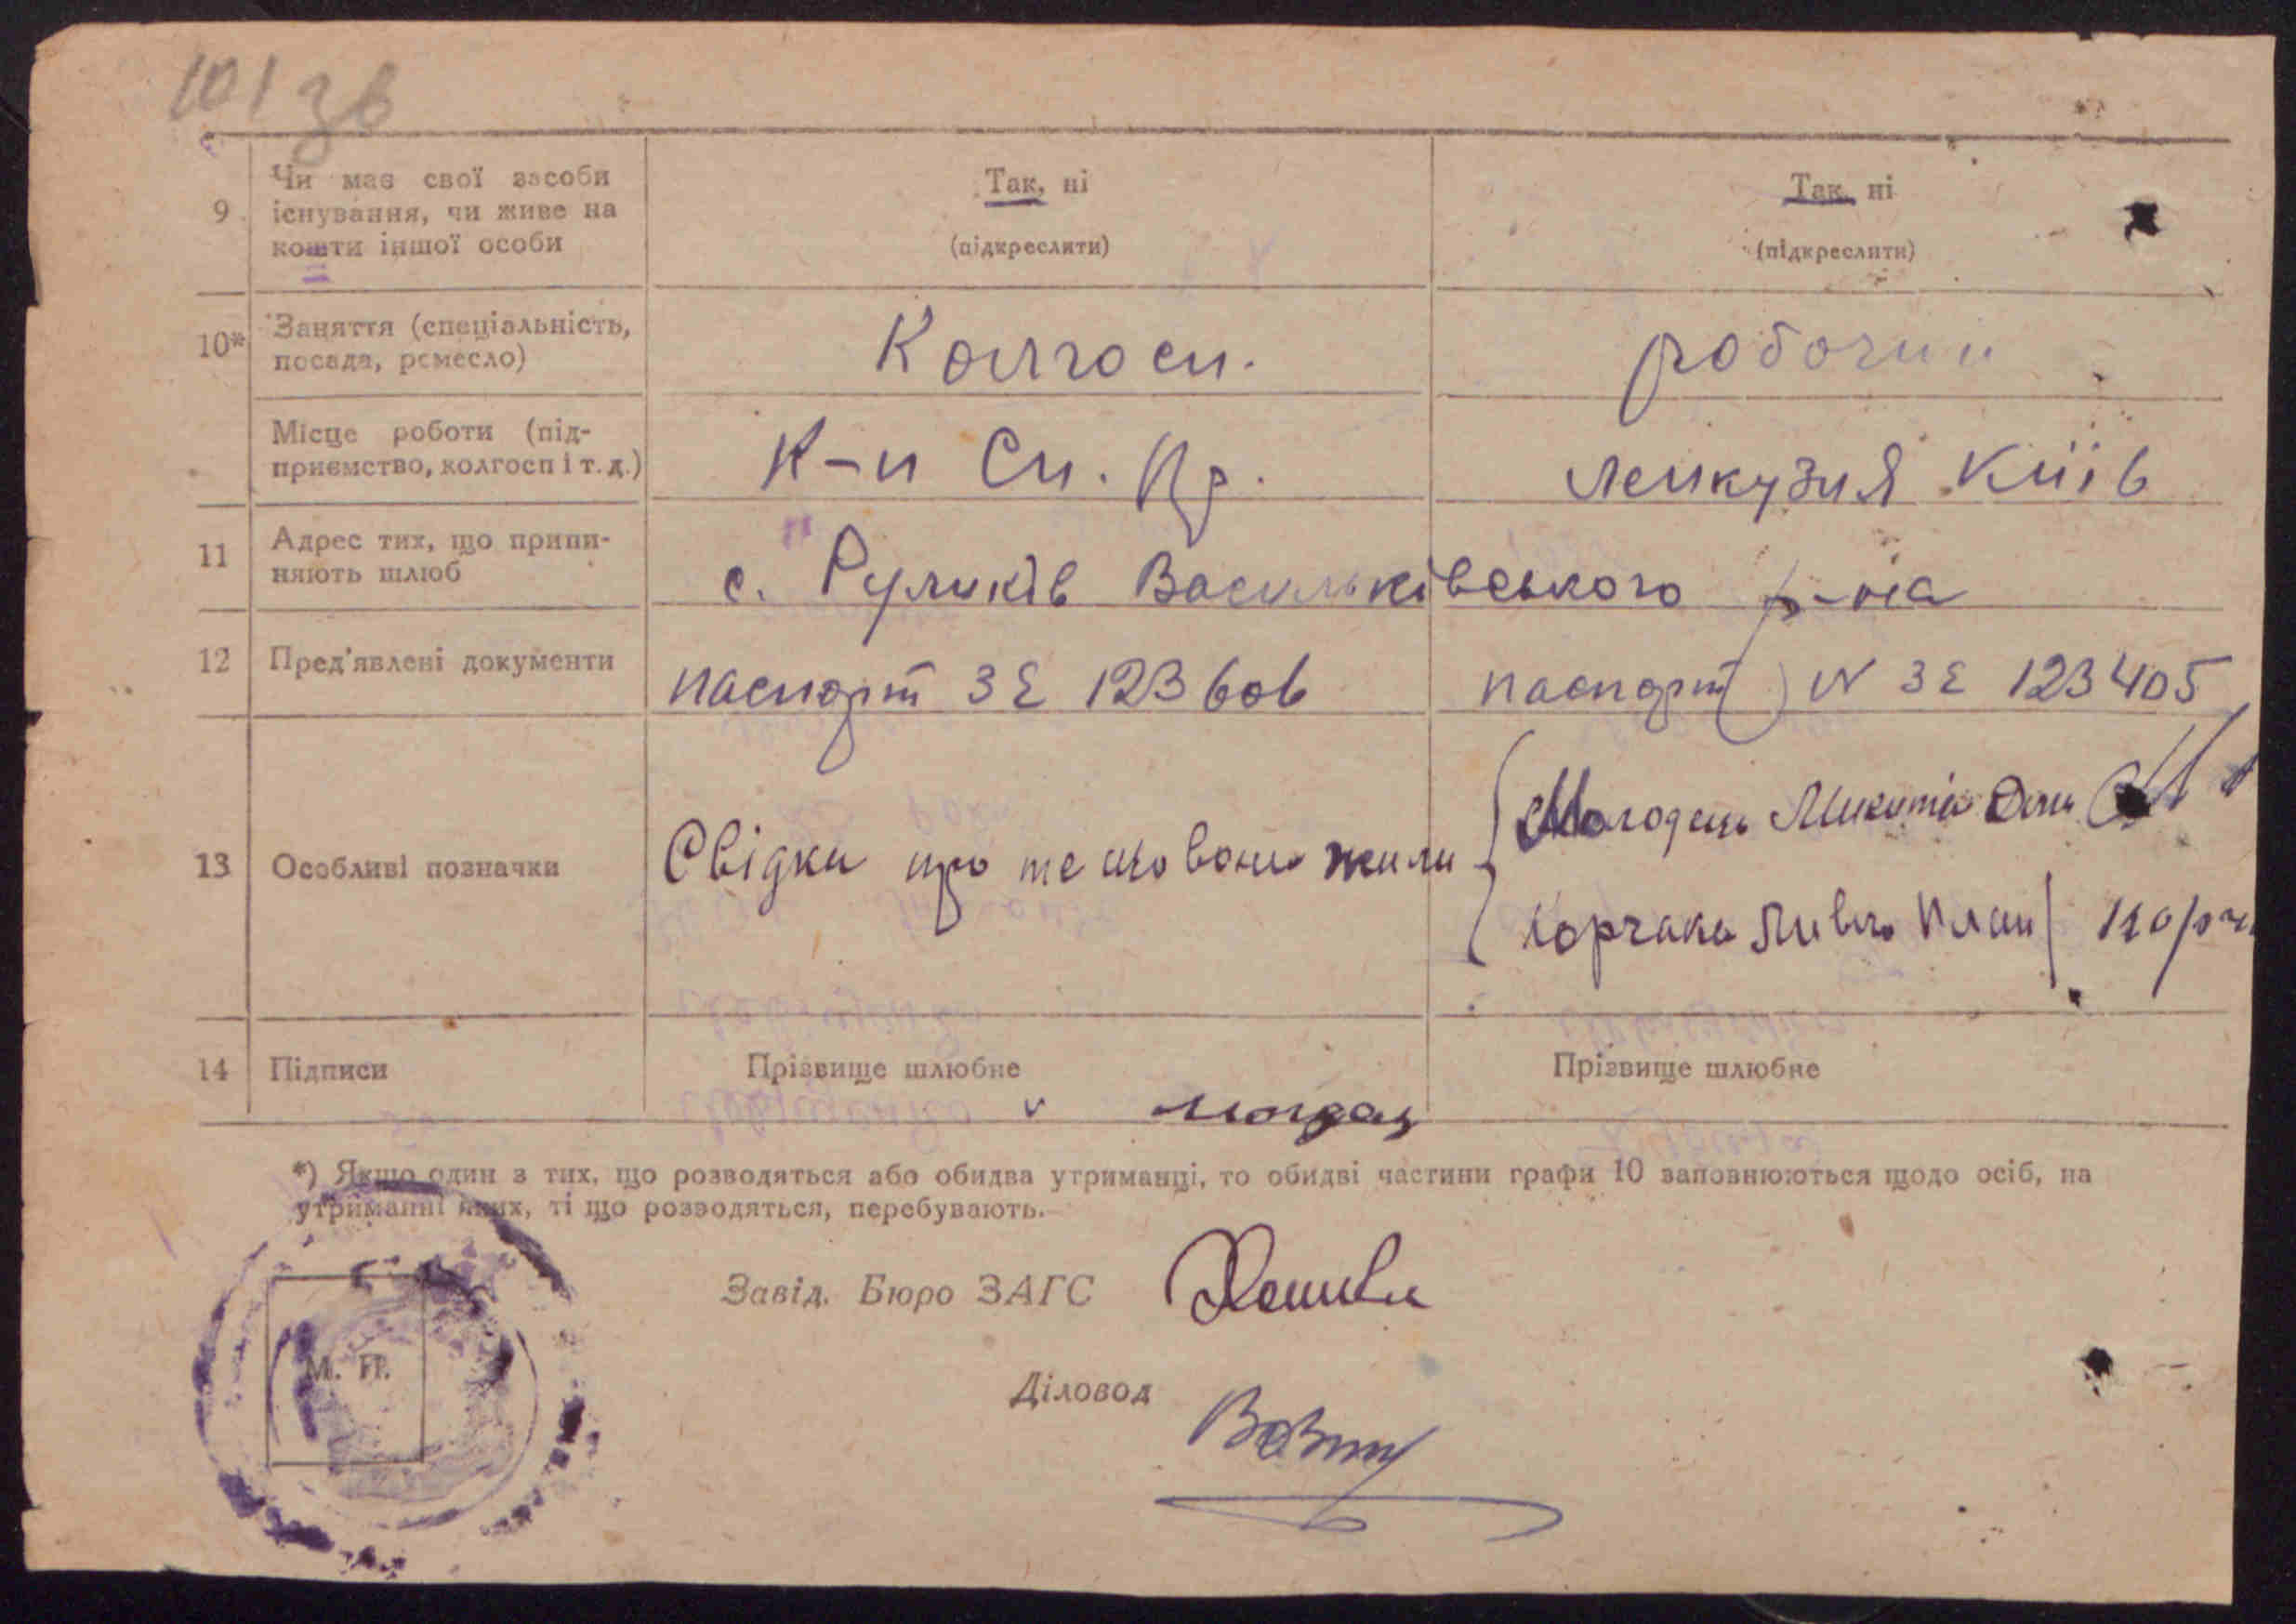 101 зв
9 Чи має свої засоби існування, чи живе на кошти іншої особи Так, ні (підкреслити) Так, ні (підкреслити)
10* Заняття (спеціальність, посада, ремесло) Колгосп. робочий
Місце роботи (підприємство, колгосп і т. д.) К-п Київ
11 Адрес тих, що припиняють шлюб с. Руликів Васильківського р-на
12 Пред'явлені документи паспорт ЗЕ 123606 паспорт № ЗЕ 123405
13 Особливі позначки Свідки про те що вони жили Микита
14 Підписи Прізвище шлюбне Прізвище шлюбне
*) Якщо один з тих, що розводяться або обидва утриманці, то обидві частини графи 10 заповнюються щодо осіб, на
утриманні яких, ті що розводяться, перебувають.
Завід. Бюро ЗАГС
М. П.
Діловод